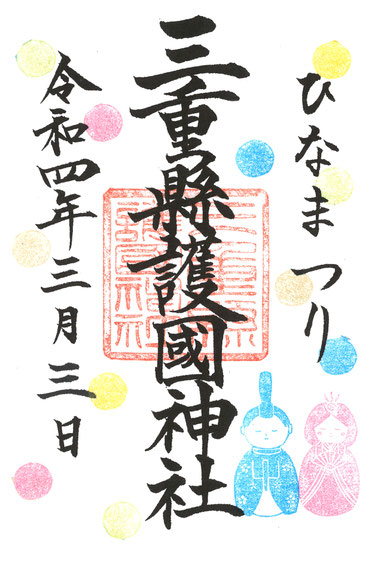 ひなまつり
三重縣護國神社
令和四年三月三日